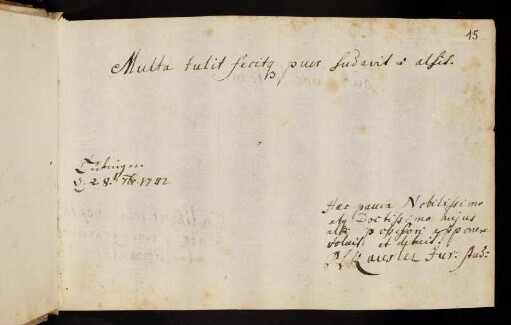 15
Multa tulit fecitq puer sudavit & alsit.
Tübingen
d. 28. 7br. 1742
Hæc pauca Nobilissimo
atq Doctissimo hujus
albi possessori apponere
voluit et debuit
Jur: Stud: